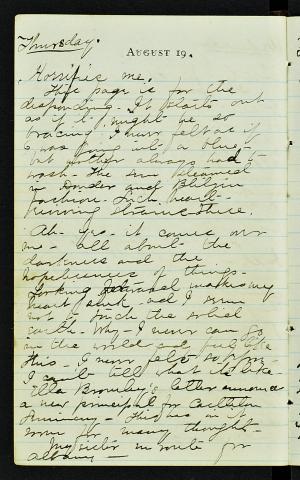 Thursday.
AUGUST 19.
Horrifies me.
This page is for the
desponding. It starts out
as if it might be so
bracing. I never felt as if
I was going into a blue,
but mother always had to
wash. The sun steamed
in and
fashion. Such heart-
running steams there.
Ah - yes - it comes over
me - all about the
darkness and the
hopelessness of things.
Looking makes my
heart sink - and I seem
not to touch the solid
earth. Why - I never can go
in the world and feel like
this - I never felt so
I can't tell what it's like
Ella Bromley's letter announced
a new principal for
Seminary - This has in it
room for many thoughts -
My sister in route for
Albany -